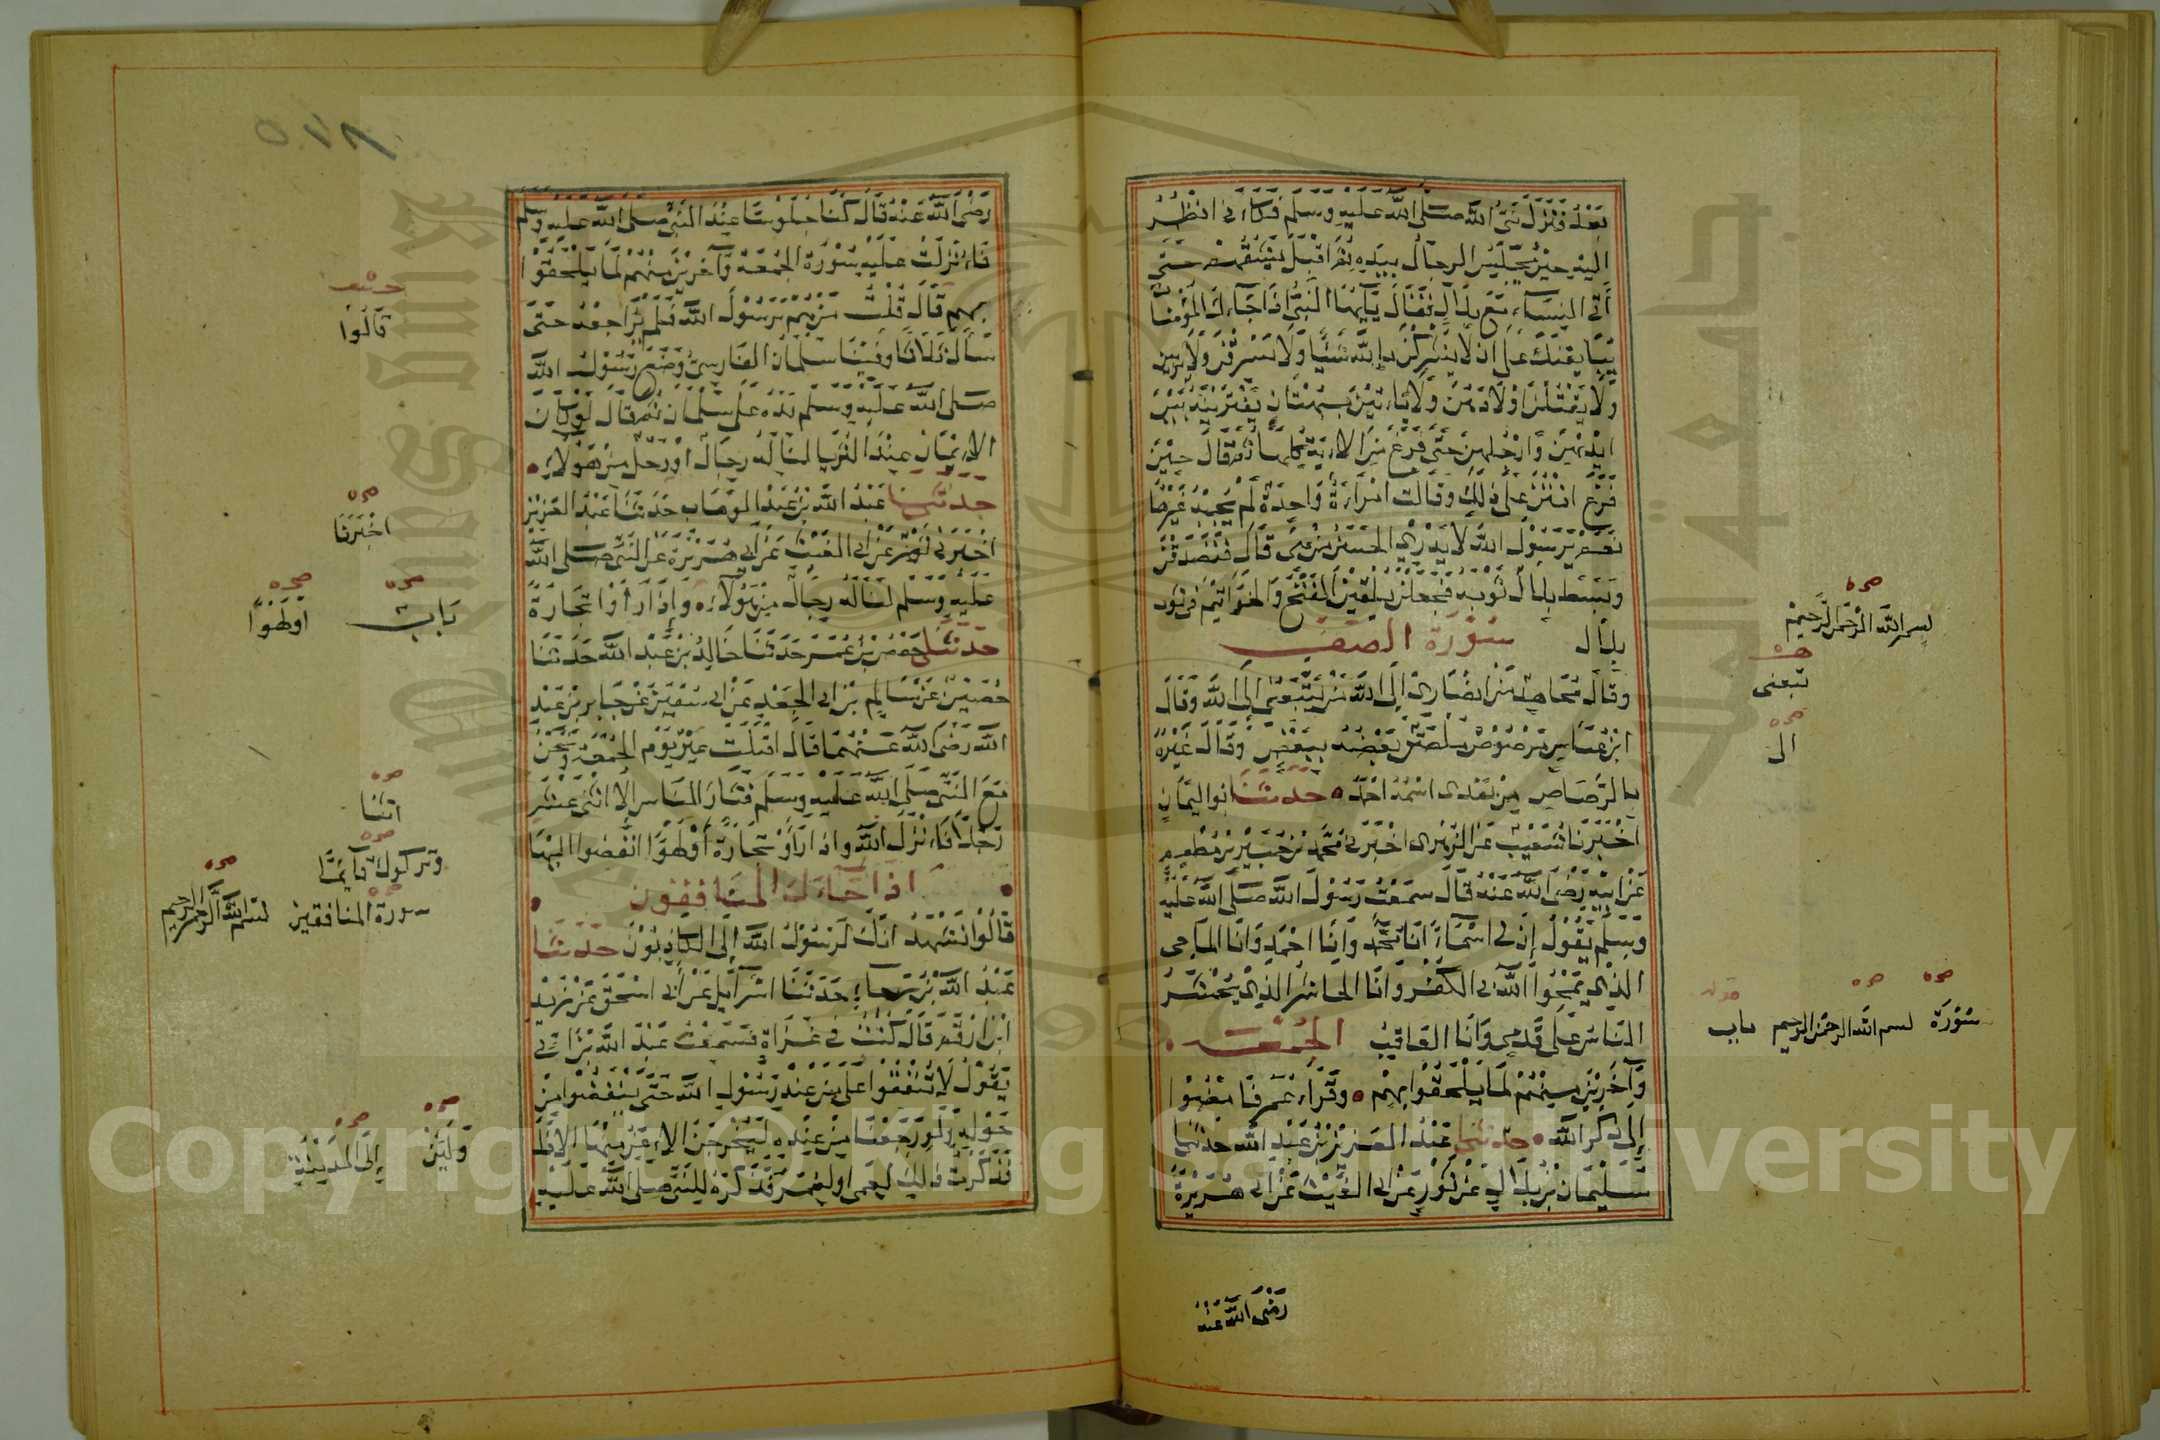 بَعْدُ فَنَزَلَ نَبِيُّ اللّٰهِ صَلَّى اللّٰهُ عَلَيْهِ وَسَلَّمَ فَكَأَنِّي انْظُرُ
اليْهِ حِيْنَ يُجَلِّسُ الرجَالَ بِيَدِهِ ثُمَّ اقْبَلَ يَشُقُّهُمْ حَتَّى
أَتَى النِّسَاءَ مَعَ بِلَالٍ فَقَالَ يَآيُّهَا النَّبِيُّ اذَا جَآءَكَ المُؤمِنَاتُ
يُبَايِعْنَكَ عَلَى ان لَا يُشْرِكْنَ بِاللّٰهِ شَيْئًا وَلَا يَسْرِقْنَ وَلَا يَزنِين
وَلَا يَقْتُلْنَ اوْلَادَهُنَّ وَلَا يَأتِيْنَ بِبُهْتَانٍ يَفْتَرِيْنَهُ بَيْنَ
ايْدِيْهِنَّ وَارْجُلِهِنَّ حَتَّى فَرَغَ مِنَ الآيَةِ كُلِّهَا ثُمَّ قَالَ حِيْنَ
فَرَغَ انْتُنَّ عَلَى ذَلِكَ وقَالَتِ امْرَاَةٌ وَاحِدَةٌ لَمْ يُجِبْهُ غَيْرُهَا
نَعَمْ يَرَسُوْلَ اللّٰهِ لَا يَدْرِي الحَسَنُ مَنْ هِيَ قَالَ فَتَصَدَّقْنَ
وَبَسَطَ بِلَالٌ ثَوْبَهُ فَجَعَلْنَ يُلْقِيْنَ الفَتَخَ وَالخَوَاتِيْمَ فِى ثَوب
بِلَالٍ سُوْرَةُ الصَّفِّ
وقَالَ مُجَاهِدٌ مَنْ انْصَارِى إِلَى اللّٰهِ مَنْ يَتَّبِعُنِى إِلَى اللّٰهِ وَقَالَ
ابْنُ عَبَّاسٍ مَرْصُوْصٌ مُلْصَقٌ بَعْضُهُ بِبَعْضٍ وَقَالَ غَيْرُهُ
بِالرَّصَاصِ مِنْ بَعْدِى اسْمُهُ احْمَدُ حَدَّثَنَا ابُو اليَمَانِ
اخْبَرَنَا شُعَيْبٌ عَنِ الزُّهْرِى اخْبَرَنِى مُحَمَّدُ بْنُ جُبَيْرِ بْنِ مُطْعِمٍ
عَنْ ابِيْهِ رَضِىَ اللّٰهُ عَنْهُ قَالَ سَمِعْتُ رَسُوْلَ اللّٰهِ صَلَّى اللّٰهُ عَلَيْهِ
وَسَلَّمَ يَقُوْلُ إِنَّ لِى اسْمَآءً انَا مُحَمَّدٌ وَانَا احْمَدُ وَانَا المَاحِى
الذِى يَمْحُوا اللّٰهُ بِىَ الكُفْرَ وانَا الحَاشِرُ الذِى يُحْشَرُ
النَّاسُ عَلَى قَدَمِى وَانَا العَاقِبُ الجُمُعَة
وَآخَرِيْنَ مِنْهُمْ لَمَّا يَلْحَقُوْا بِهِمْ وَقَرَاَ عُمَرُ فَامْضُوْا
إِلَى ذِكْرِ اللّٰهِ حَدَّثَنِى عَبْدُ العَزِيْزِ بْنُ عَبْدِ اللّٰهِ حَدَّثَنَا
سُلَيْمَانُ بْنُ بِلَالٍ عَنْ ثَوْرٍ عَنْ ابِى الغَيْثِ عَنْ ابِى هُرَيْرَةَ
رَضِىَ اللّٰهُ عَنْهُ
بِسمِ اللّٰهِ الرَّحْمٰنِ الرَّحِيْمِ
تبعنى
الى
سُوْرَة بسم اللّٰه الرحمٰن الرحيم باب
رَضِىَ اللّٰهُ عَنْهُ قَالَ كُنَّا جُلُوْسًا عِنْدَ النَّبِيِّ صَلَّى اللّٰهُ عَلَيْهِ وَسَلَّمَ
فَاُنْزِلَتْ عَلَيْهِ سُوْرَةُ الجُمُعَةِ وَآخَرِيْنَ مِنْهُمْ لَمَّا يَلْحَقُوْا
بِهِمْ قَالَ قُلْتُ مَنْ هُمْ يَرَسُوْلَ اللّٰهِ فَلَمْ يُرَاجِعْهُ حَتَّى
سَاَلَ ثَلَاثًا وَفِيْنَا سَلْمَانُ الفَارِسِىُّ وَضَعَ رَسُوْلُ اللّٰهِ
صَلَّى اللّٰهُ عَلَيْهِ وَسَلَّمَ يَدَهُ عَلَى سَلْمَانَ ثُمَّ قَالَ لَوْ كَانَ
الإِيْمَانُ عِنْدَ الثُّرَيَّا لَنَالَهُ رِجَالٌ اوْ رَجُلٌ مِنْ هَؤُلَاءِ
حَدَّثَنَا عَبْدُ اللّٰهِ بْنُ عَبْدِ الوَهَابِ حَدَّثَنَا عَبْدُ العَزِيْزِ
اخْبَرَنِى ثَوْرٌ عَنْ ابِى الغَيْثِ عَنْ ابِى هُرَيْرَةَ عَنِ النَّبِىِّ صَلَّى اللّٰهُ
عَلَيْهِ وَسَلَّمَ لَنَالَهُ رِجَالٌ مِنْ هَؤُلَاءِ وَإِذَا رَاَوْا تِجَارَةً
حَدَّثَنِى حَفْصُ بْنُ عُمَرَ حَدَّثَنَا خَالِدُ بْنُ عَبْدِ اللّٰهِ حَدَّثَنَا
حُصَيْنٌ عَنْ سَالِمِ بْنِ ابِى الجَعْدِ عَنْ ابِى سُفْيَنَ عَنْ جَابِرِ بْنِ عَبْدِ
اللّٰهِ رَضِىَ اللّٰهُ عَنْهُمَا قَالَ اقْبَلَتْ عِيْرٌ يَوْمَ الجُمُعَةِ وَنَحْنُ
مَعَ النَّبِىِّ صَلَّى اللّٰهُ عَلَيْهِ وَسَلَّمَ فَثَارَ النَّاسُ إِلَّا اثْنَى عَشَرَ
رَجُلًا فَاَنْزَلَ اللّٰهُ وَاذَا رَاَوْا تِجَارَةً أَوْ لَهْوًا انْفَضُّوا الَيْهَا
اذَا جَآءَكَ المُنَافِقُون
قَالُوْا نَشْهَدُ انَّكَ لَرَسُوْلُ اللّٰهِ إِلَى الكَاذِبُوْنَ حَدَّثَنَا
عَبْدُ اللّٰهِ بْنُ رَجَاءٍ حَدَّثَنَا اسْرَآئِيْلُ عَنْ أَبِى اسْحٰقَ عَنْ زَيْدِ
ابْنِ ارْقَمَ قَالَ كُنْتُ فِى غَزَاةٍ فَسَمِعْتُ عَبْدَ اللّٰهِ بْنَ ابَيٍّ
يَقُوْلُ لَا تُنْفِقُوْا عَلَى مَنْ عِنْدَ رَسُوْلِ اللّٰهِ حَتَّى يَنْفَضُّوا مِنْ
حَوْلِهِ وَلَوْ رَجَعْنَا مِنْ عِنْدِهِ لَيُخْرِجَنَّ الاَعَزُّ مِنْهَا الاَذَلَّ
فَذَكَرْتُ ذَلِكَ لِعَمِّى اوْ لِعُمَرَ فَذَكَرَهُ لِلنَّبِىِّ صَلَّى اللّٰهُ عَلَيْهِ
قَالُوْا
اخْبَرَنَا
بَاب اوْ لَهْوًا
اثنَا
وتركوك قَآئِمًا
سورة المنافقين بسم اللّٰه الرحمٰن الرحيم
وَلَئِنْ إِلَى المَدِيْنَةِ
Copyright © King Saud University